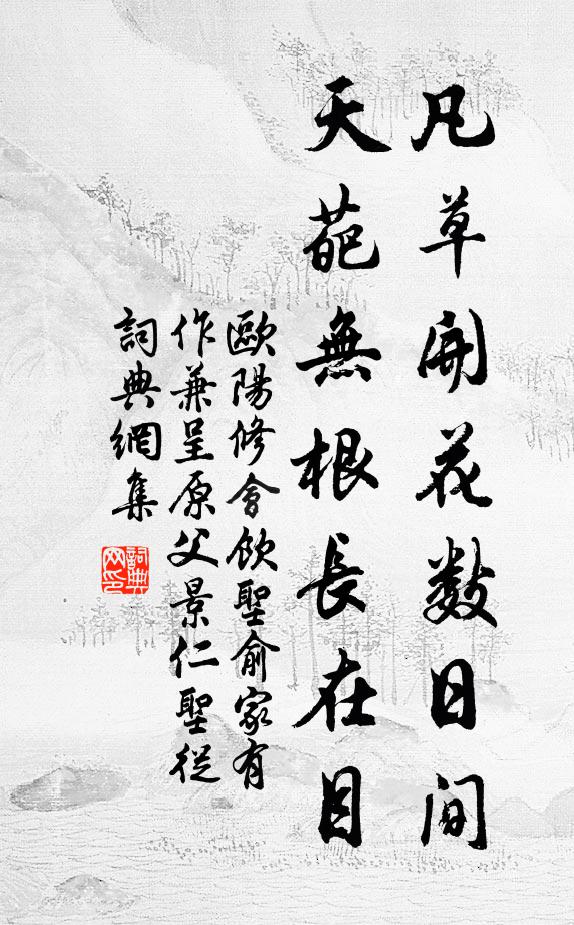 凡草開花數日間
天葩無根長在目
歐陽修會飲聖俞家有
作兼呈原父景仁聖從
詞典網集
詞典
网印